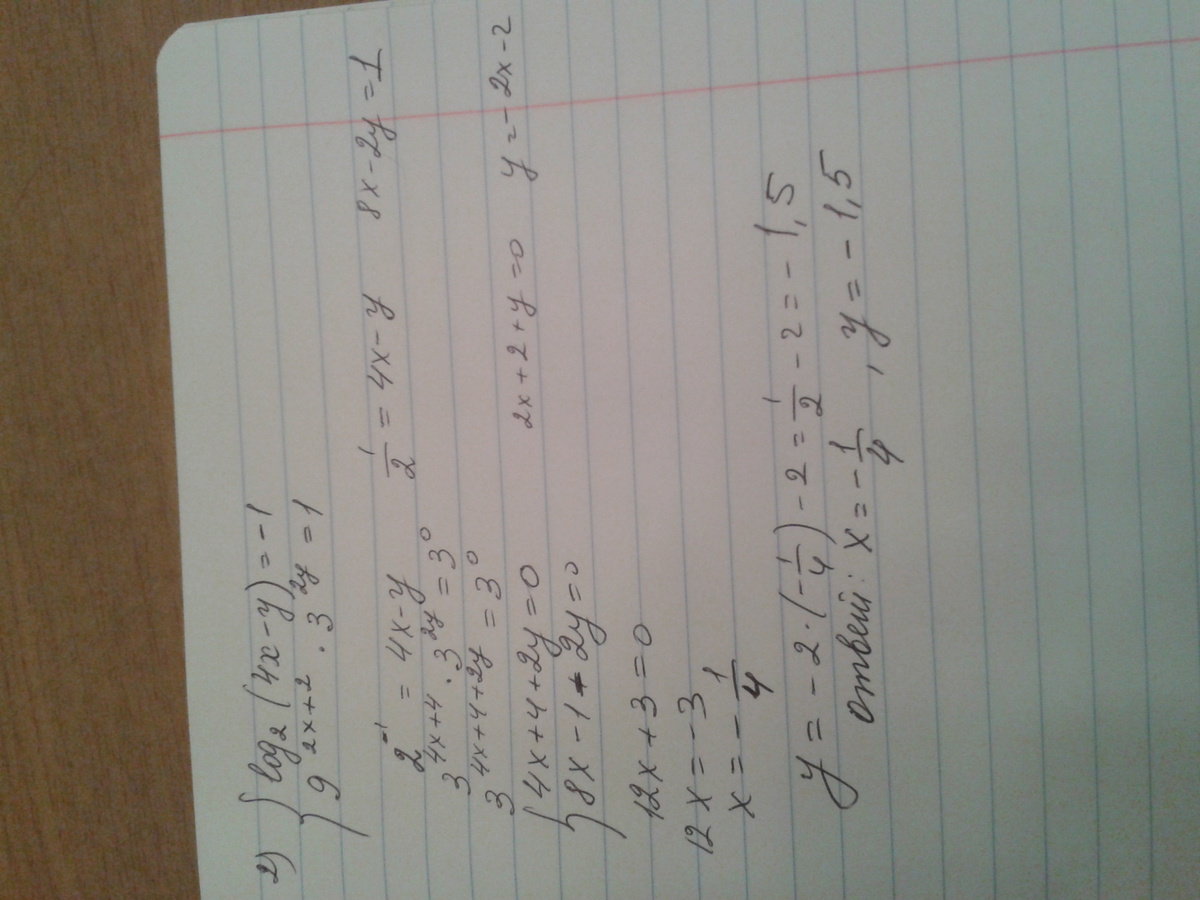 2) { log₂(4x-y) = -1
9^(2x+2) · 3^(2y) = 1
2^(-1) = 4x-y    1/2 = 4x-y    8x-2y=1
3^(4x+4) · 3^(2y) = 3^0
3^(4x+4+2y) = 3^0    2x+2+y=0    y=-2x-2
{ 4x+4+2y=0
8x-1-2y=0
12x+3=0
12x=-3
x=-1/4
y=-2·(-1/4)-2=1/2-2=-1,5
ответ: x=-1/4, y=-1,5